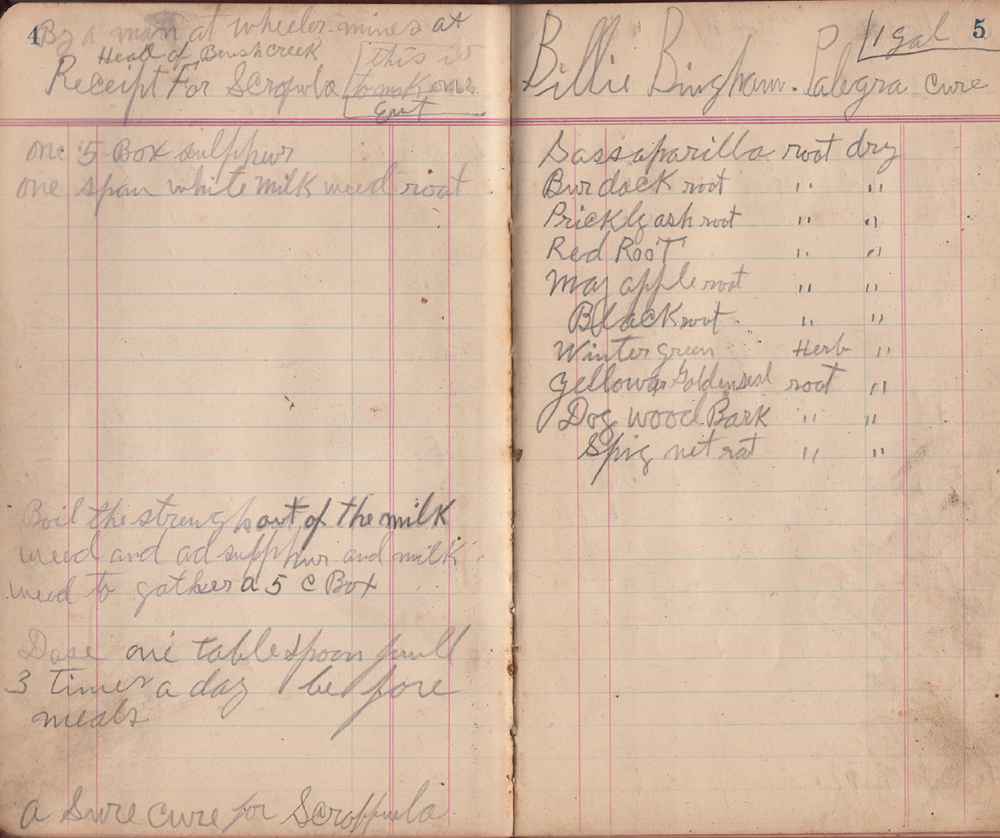 4
By a man at wheeler mines at
Head of Brush Creek
Receipt For Scrofula
this is
to mak one
Gut
one 5 Box sulphur
one span white milk weed root
Boil the strengh out of the milk
weed and ad sulphur and milk
weed to gather a 5 c Box
Dose one table spoon full
3 times a day before
meals
a Sure cure for Scroffula
5
1 gal
Billie Bingham. Palegra cure
Sassaparilla root dry
Burdock root " "
Prickly ash root " "
Red Root " "
may apple root " "
Black root " "
Winter green Herb "
yellow or Goldenseal root "
Dog wood Bark " "
Spig net rat " "